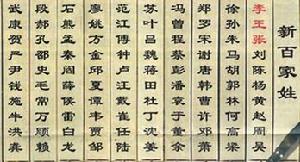 新百家姓
李王张刘陈杨黄赵周吴
徐孙朱马胡郭林何高梁
郑罗宋谢唐韩曹许邓萧
冯曾程蔡彭潘袁于董余
苏叶吕魏蒋田杜丁沈姜
范江傅钟卢汪戴崔任陆
廖姚方金邱夏谭韦贾邹
石熊孟秦阎薛侯雷白龙
段郝孔邵史毛常万顾赖
武康贺严尹钱施牛洪龚